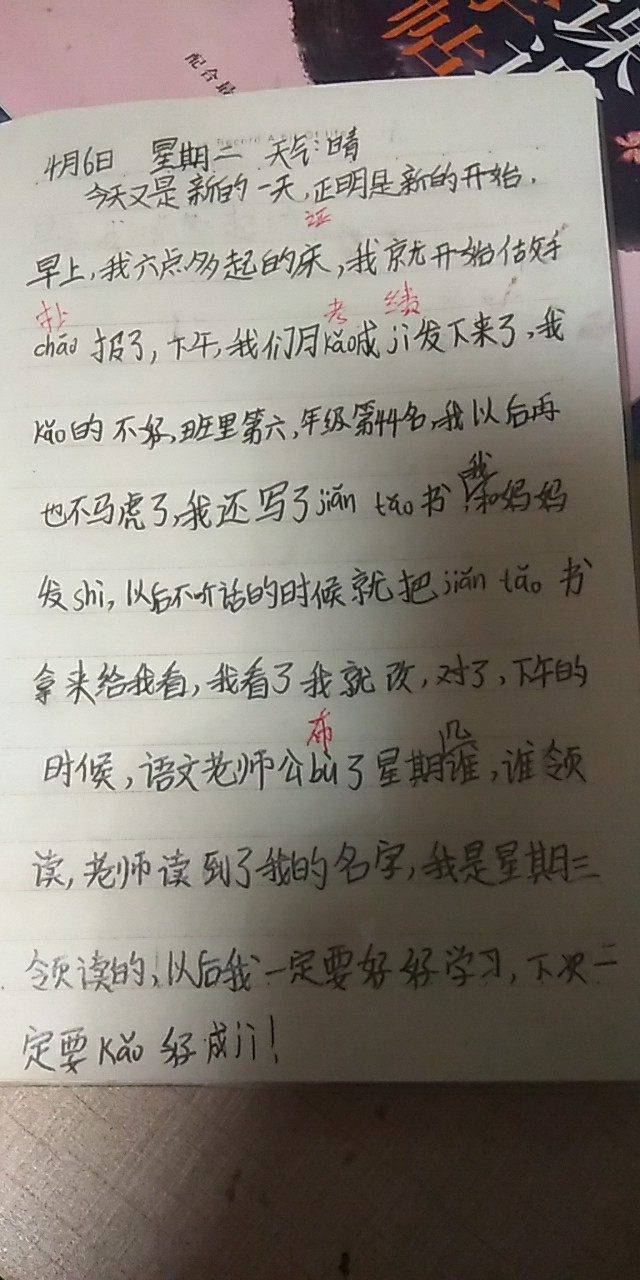 配合最
课
帖
Record A Bit Of Life
4月6日 星期二 天气:晴
今天又是新的一天,正明是新的开始.
证
早上,我六点多起的床,我就开始估好手
抄 考 绩
chāo 报了,下午,我们月kǎo成jì发下来了,我
kǎo的不好,班里第六,年级第44名,我以后再
我
也不马虎了,我还写了jiǎn tǎo书,和妈妈
发shì,以后不听话的时候就把jiǎn tǎo书
拿来给我看,我看了我就改,对了,下午的
布 几
时候,语文老师公bù了星期谁,谁领
读,老师读到了我的名字,我是星期三
领读的,以后我一定要好好学习,下次一
定要kǎo好成jì!